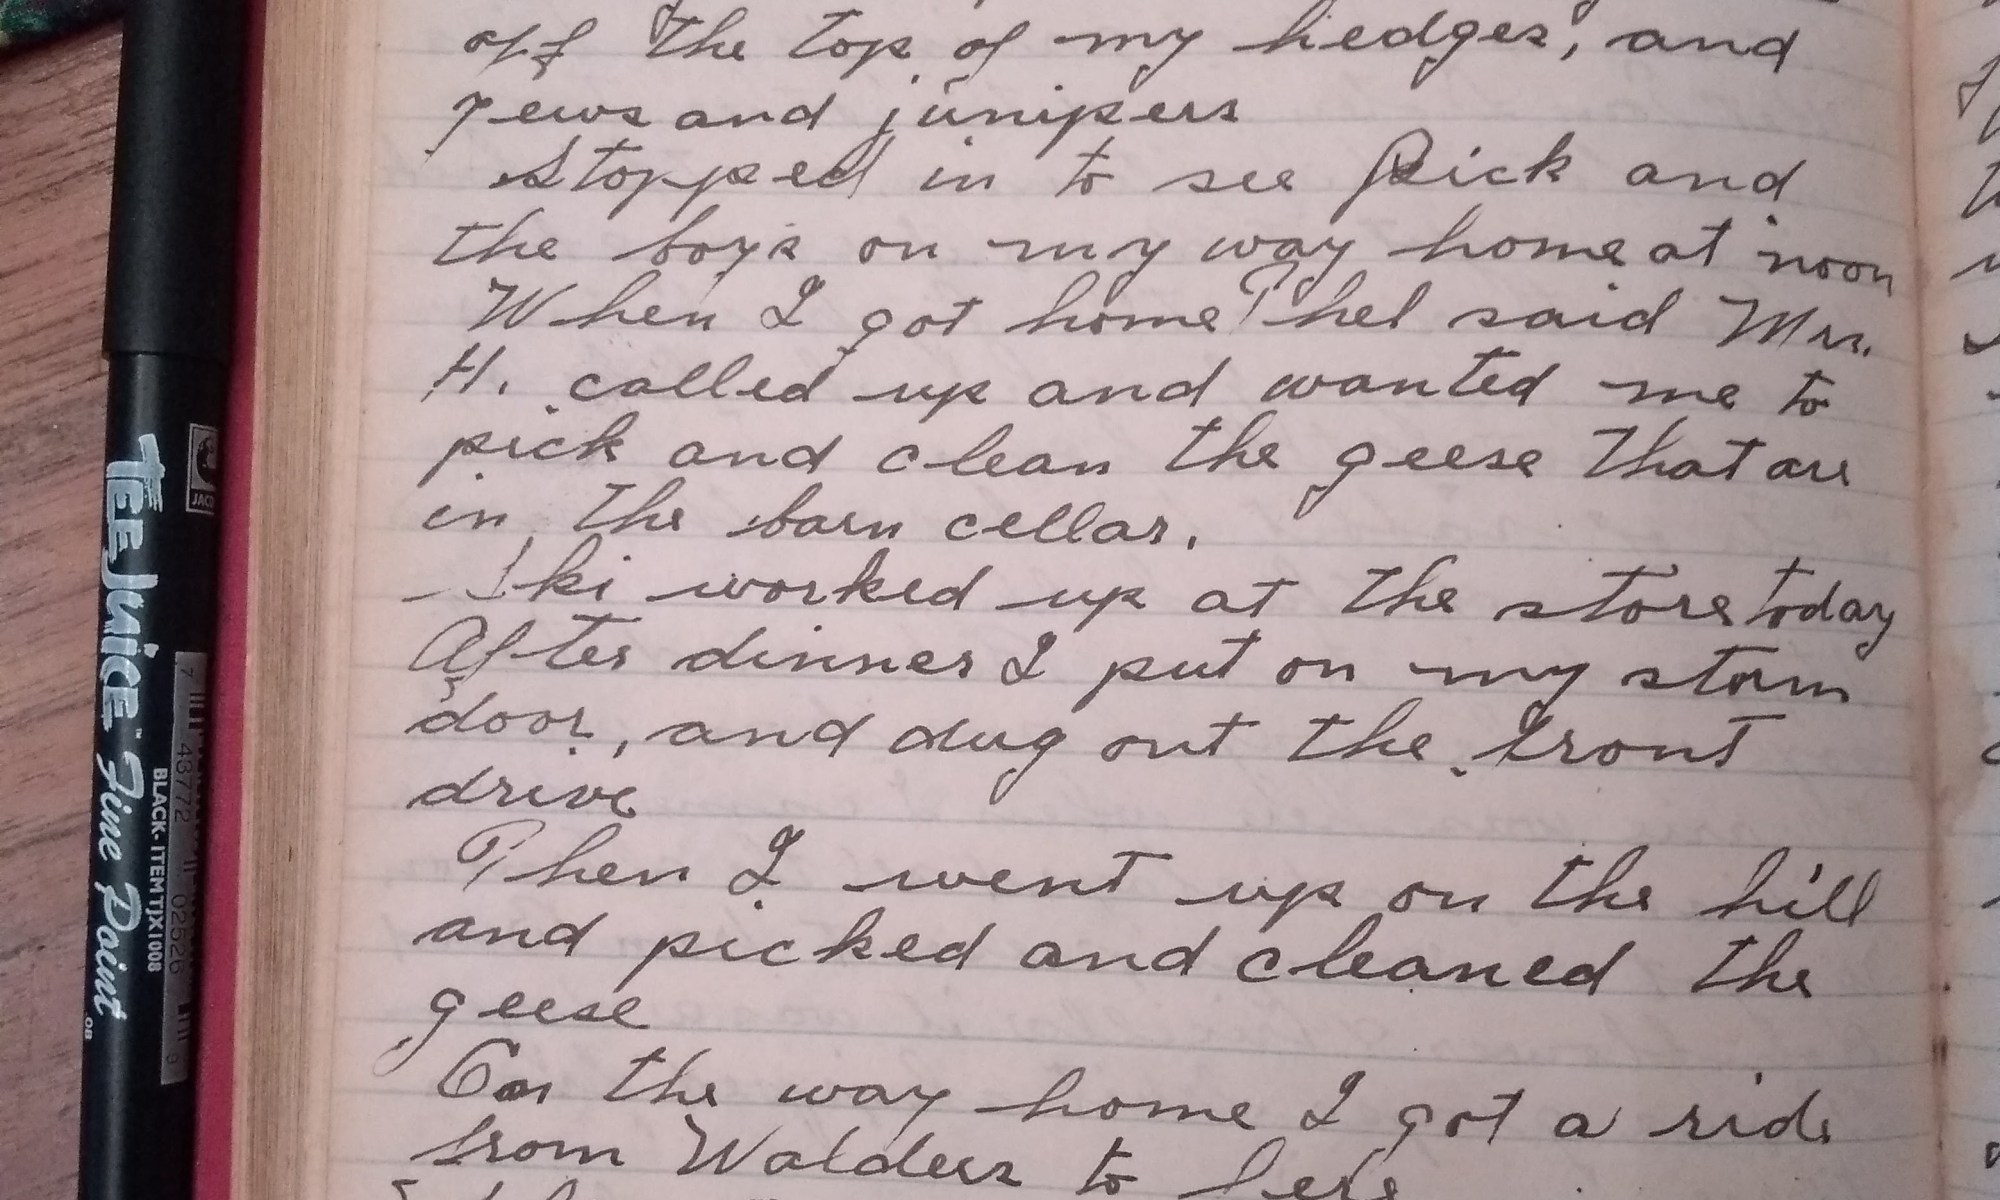 off the top of my hedges, and
yews and junipers
Stopped in to see Rick and
the boys on my way home at noon
When I got home Thel said Mrs.
H. called up and wanted me to
pick and clean the geese that are
in the barn cellar.
Ski worked up at the store today
After dinner I put on my storm
door, and dug out the front
drive
Then I went up on the hill
and picked and cleaned the
geese
On the way home I got a ride
from Walders to here
TEEJUICE™ Fine Point .08
BLACK-ITEM TJX1008
7 43772 02526 9
JAC